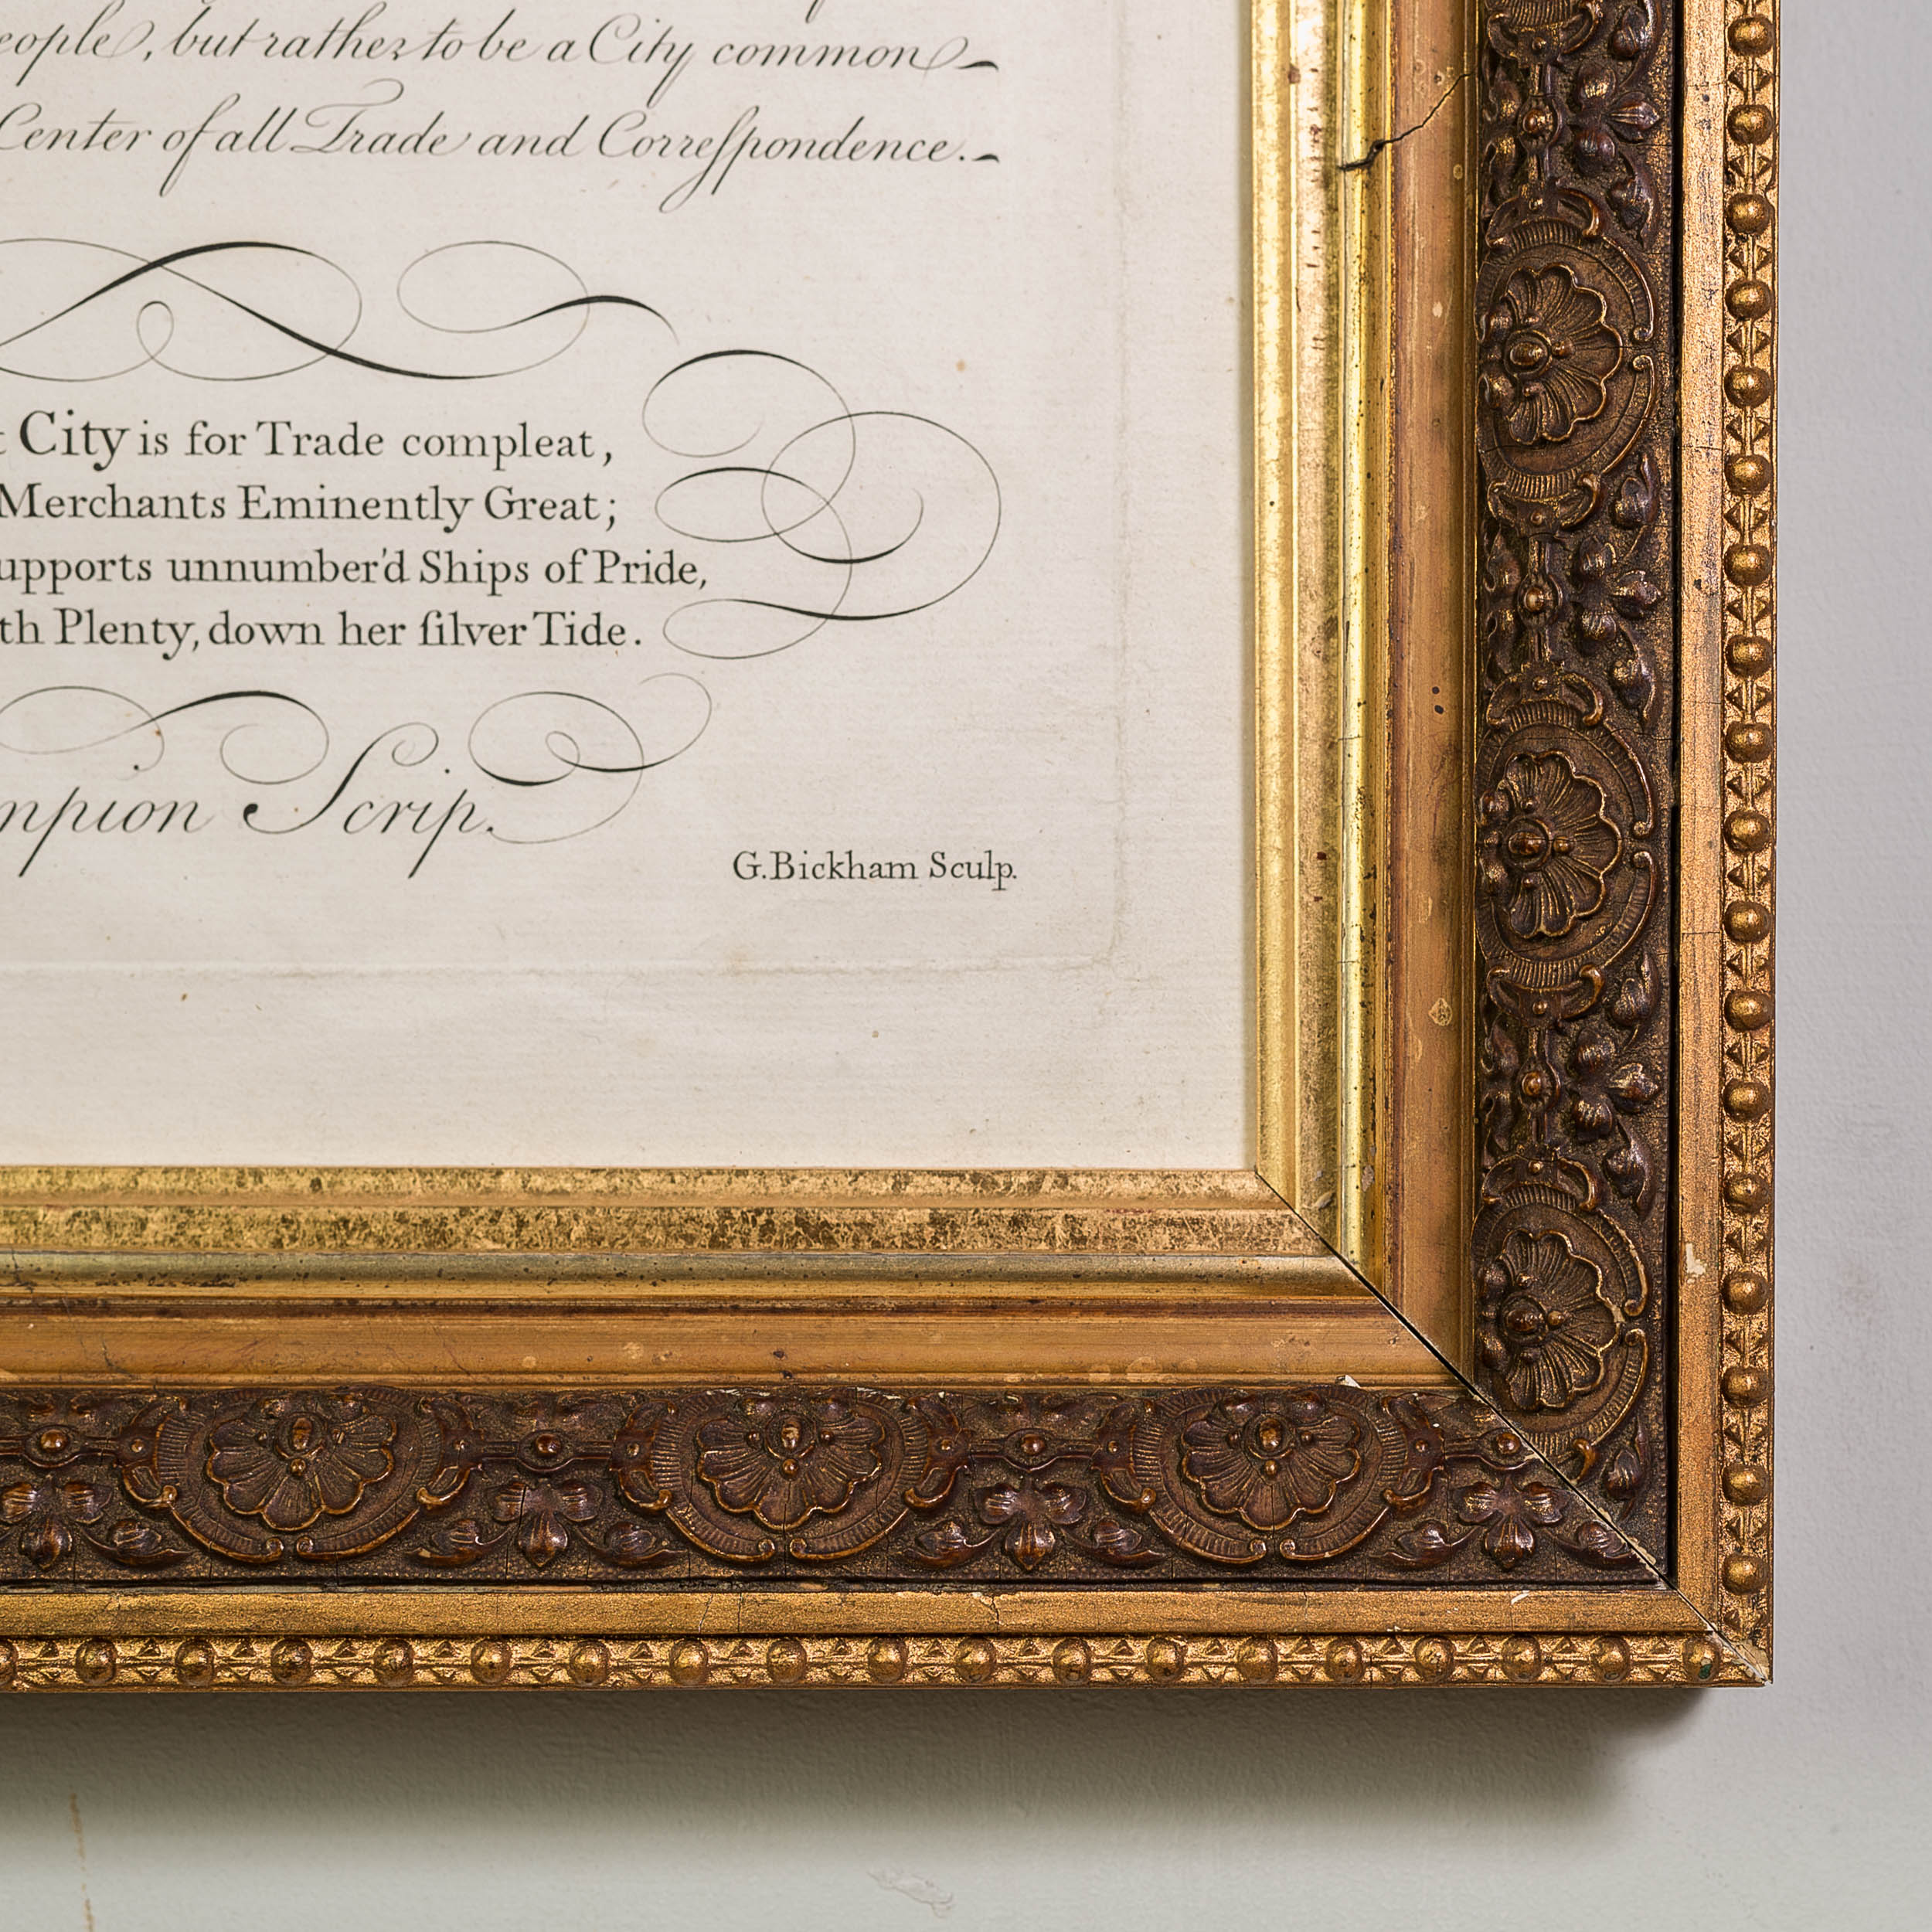 eople, but rather to be a City common
Center of all Trade and Correſpondence.
City is for Trade compleat,
Merchants Eminently Great;
upports unnumber'd Ships of Pride,
th Plenty, down her ſilver Tide.
mpion Scrip.
G. Bickham Sculp.